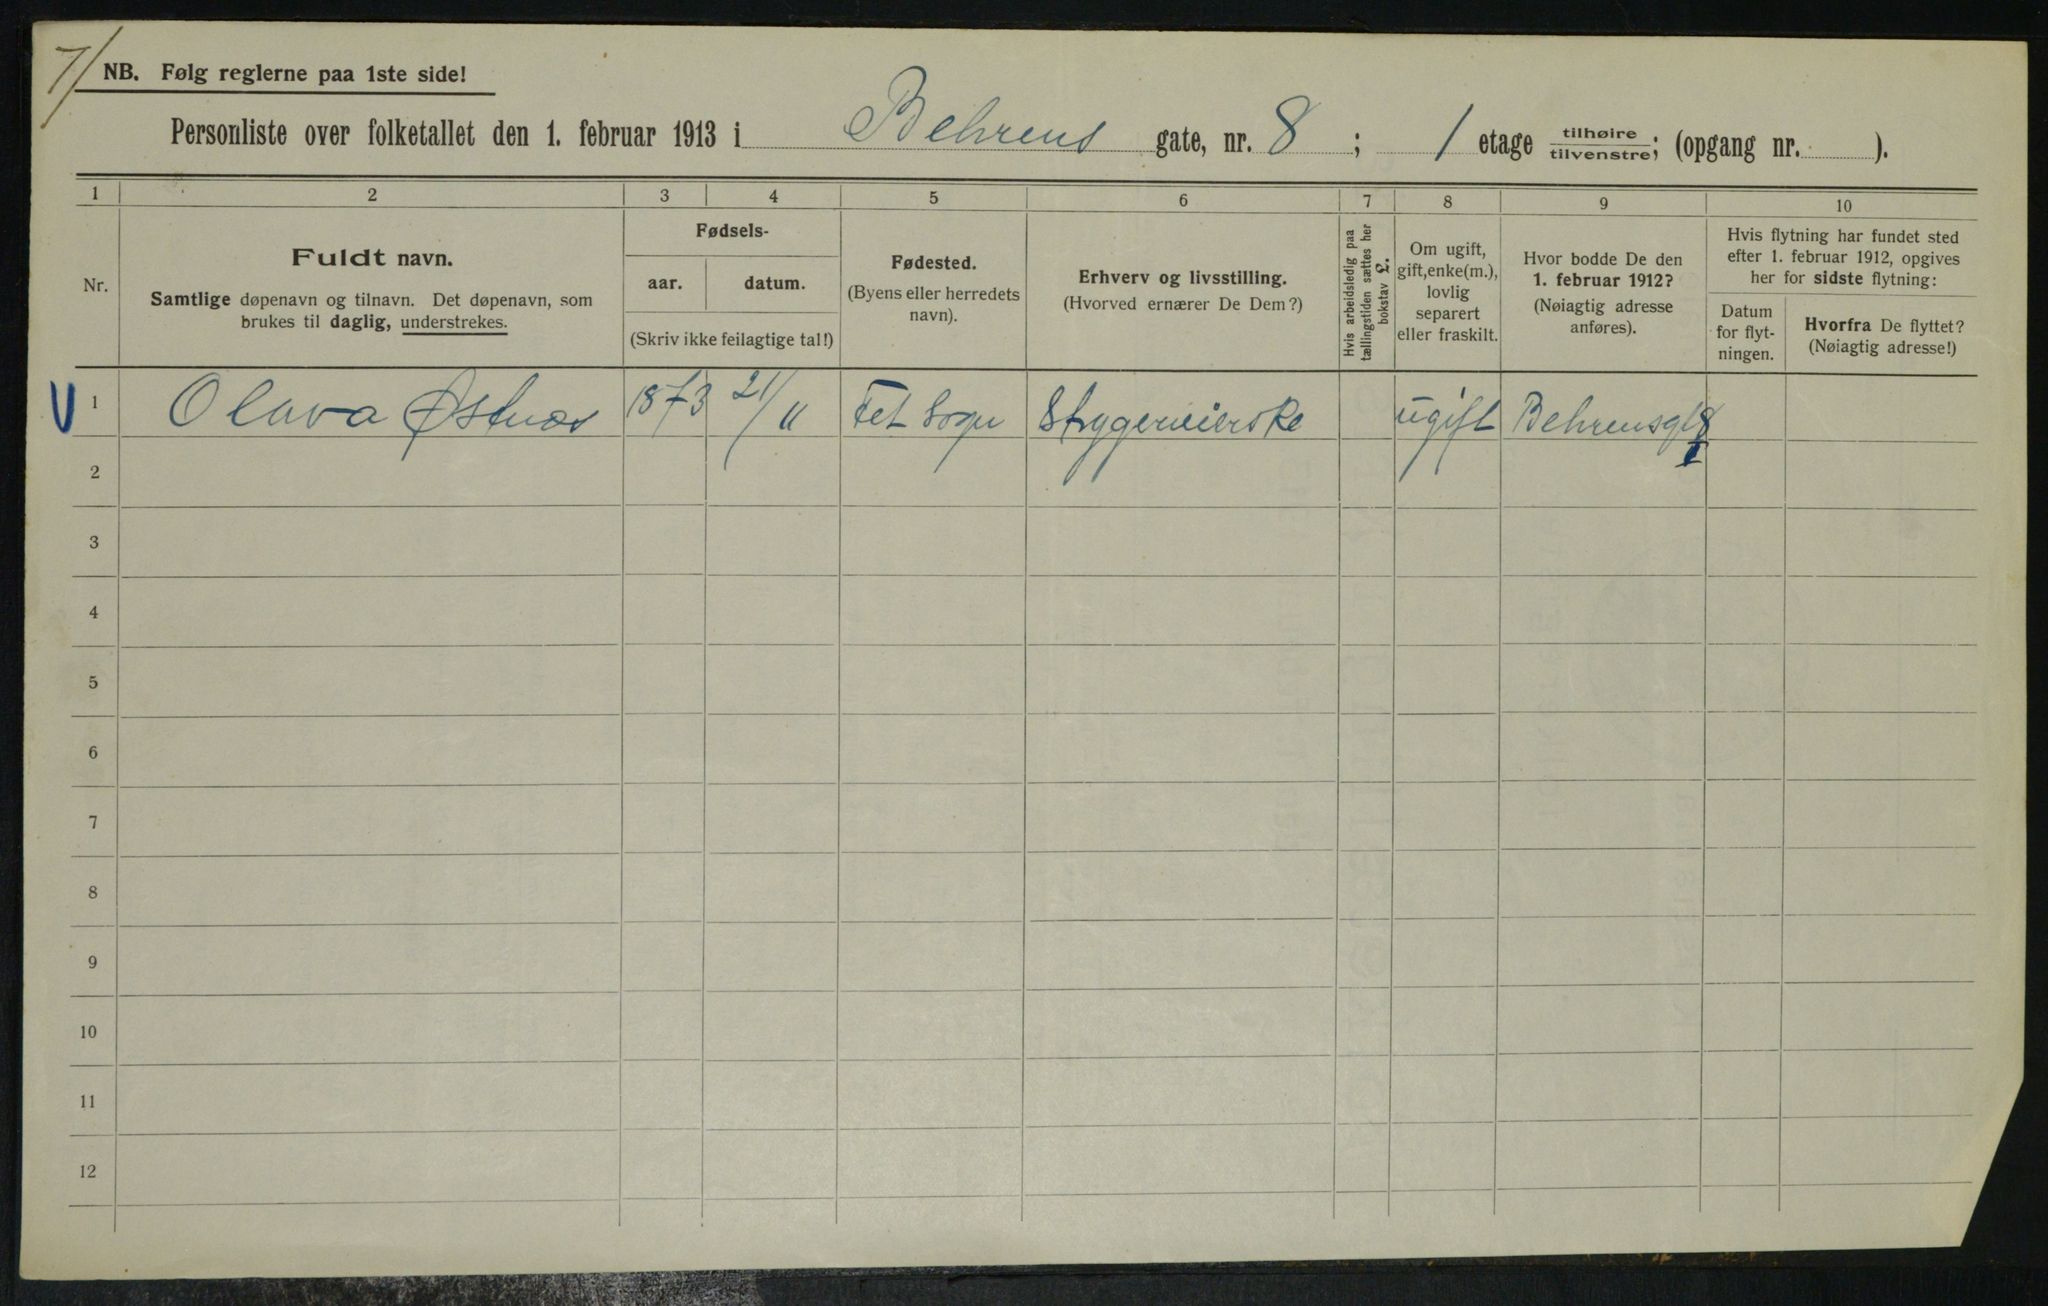 7/
NB. Følg reglerne paa 1ste side!
Personliste over folketallet den 1. februar 1913 i Behrens gate, nr. 8; 1 etage tilhøire/tilvenstre; (opgang nr. ).
1 2 3 4 5 6 7 8 9 10
Nr.
Fuldt navn.
Samtlige døpenavn og tilnavn. Det døpenavn, som
brukes til daglig, understrekes.
Fødsels-
aar. datum.
(Skriv ikke feilagtige tal!)
Fødested.
(Byens eller herredets
navn).
Erhverv og livsstilling.
(Hvorved ernærer De Dem?)
Hvis arbeidsledig paa
tællingstiden sættes her
bokstav £.
Om ugift,
gift, enke(m.),
lovlig
separert
eller fraskilt.
Hvor bodde De den
1. februar 1912?
(Nøiagtig adresse
anføres).
Hvis flytning har fundet sted
efter 1. februar 1912, opgives
her for sidste flytning:
Datum
for flyt-
ningen.
Hvorfra De flyttet?
(Nøiagtig adresse!)
1 Olava Østnæs 1873 21/11 Fet Sogn ugift Behrensgt 8
I
2
3
4
5
6
7
8
9
10
11
12